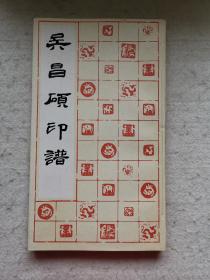 吳昌碩印譜